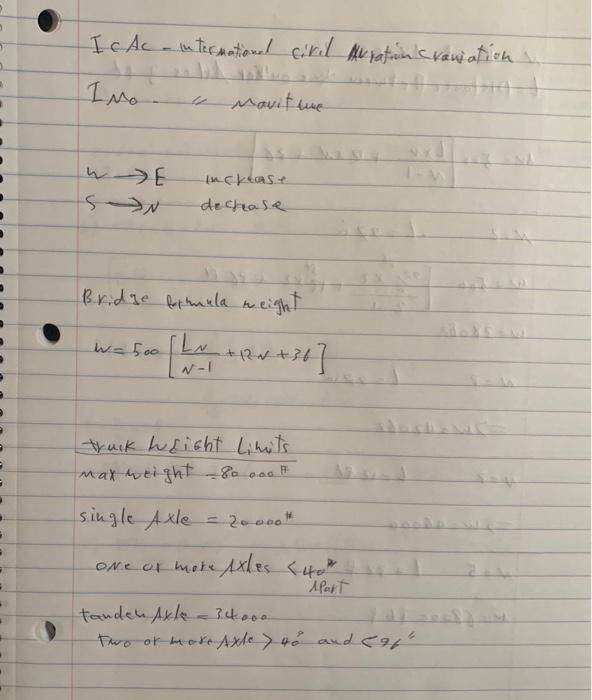 ICAC - international civil Aviation craviation
IMO - " Maritime
W → E increase
S → N decrease
Bridge formula weight
W = 500 [ LN/N-1 + 12N + 36 ]
truck weight Limits
max weight = 80 000 #
single Axle = 20 000 #
one or more Axles < 40"
Apart
tandem Axle = 34 000
Two or more Axle > 40" and < 96"